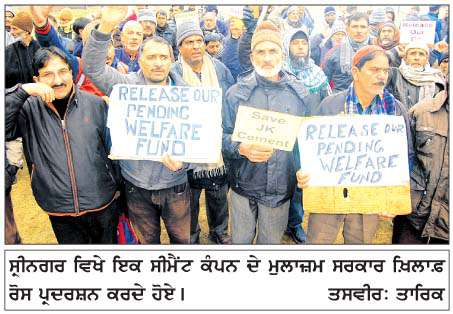 RELEASE OUR
PENDING
WELFARE
FUND
Save
JK
Cement
RELEASE OUR
PENDING
WELFARE
FUND
ਸ੍ਰੀਨਗਰ ਵਿਖੇ ਇਕ ਸੀਮੈਂਟ ਕੰਪਨ ਦੇ ਮੁਲਾਜ਼ਮ ਸਰਕਾਰ ਖ਼ਿਲਾਫ਼
ਰੋਸ ਪ੍ਰਦਰਸ਼ਨ ਕਰਦੇ ਹੋਏ। ਤਸਵੀਰ: ਤਾਰਿਕ